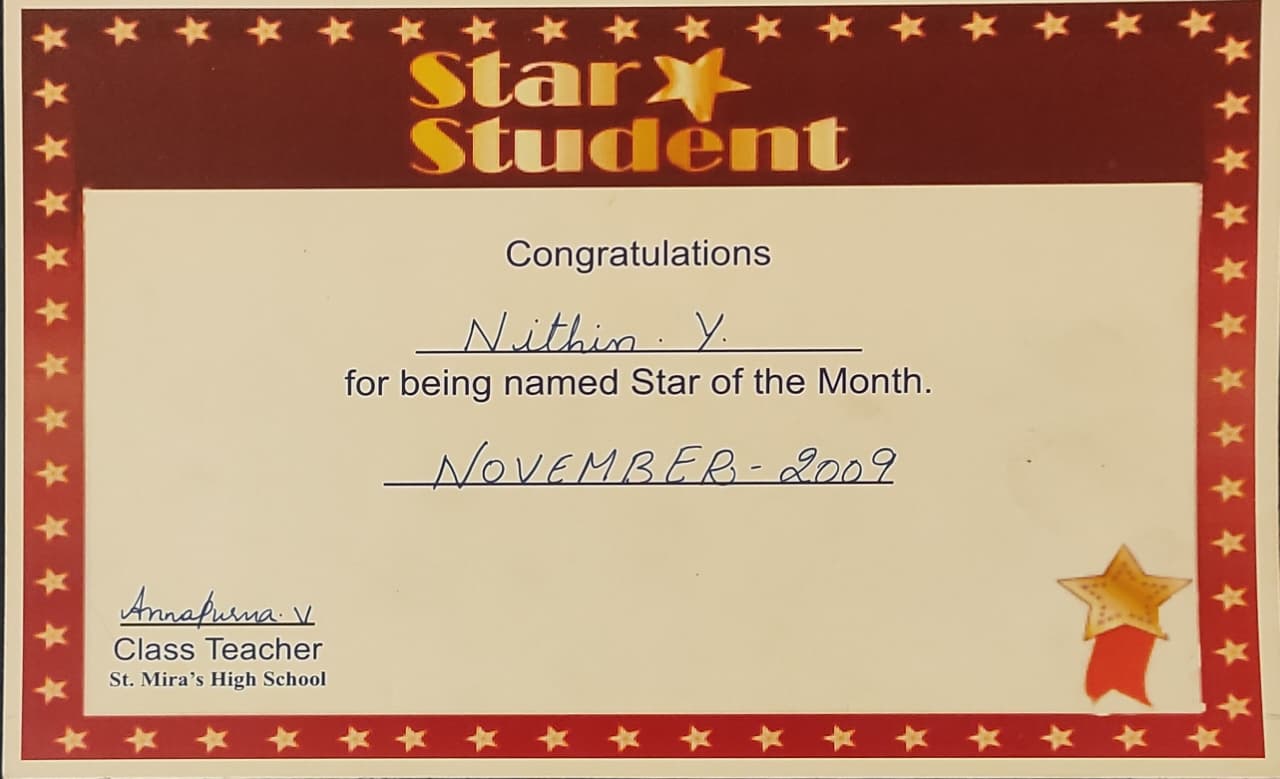 Star
Student
Congratulations
Nithin. Y.
for being named Star of the Month.
NOVEMBER - 2009
Annapurna. V
Class Teacher
St. Mira's High School